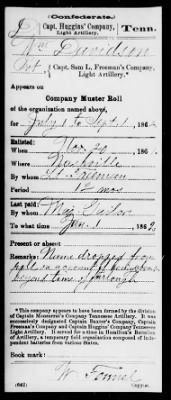 (Confederate.)
J Capt. Huggins' Company, Light Artillery. Tenn.
Wm Davidson
Pvt, Capt. Sam L. Freeman's Company, Light Artillery.*
Appears on
Company Muster Roll
of the organization named above,
for July 1 to Sept 1, 1862.
Enlisted:
When Nov 29, 186
Where Nashville
By whom Lt Freeman
Period 12 mos
Last paid:
By whom Maj
To what time Jan 1, 1862.
Present or absent
Remarks: Name dropped from
roll on account of
beyond time of furlough
*This company appears to have been formed by the division of Captain Monsarrat's Company Tennessee Artillery. It was successively designated Captain Baxter's Company, Captain Freeman's Company and Captain Huggins' Company Tennessee Light Artillery. It served for a time in Hamilton's Battalion of Artillery, a temporary field organization composed of independent batteries from various States.
Book mark:
W.
(642) Copyist.